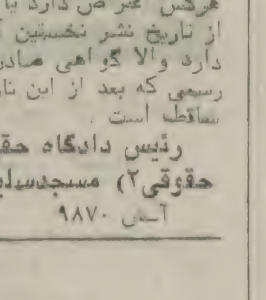 هرکس اعتراض دارد
از تاریخ نشر نخستین
دارد والا گواهی صادر
رسمی که بعد از این تار
ساقط است .
رئیس دادگاه حقو
حقوقی۲) مسجدسلی
۹۸۷۰